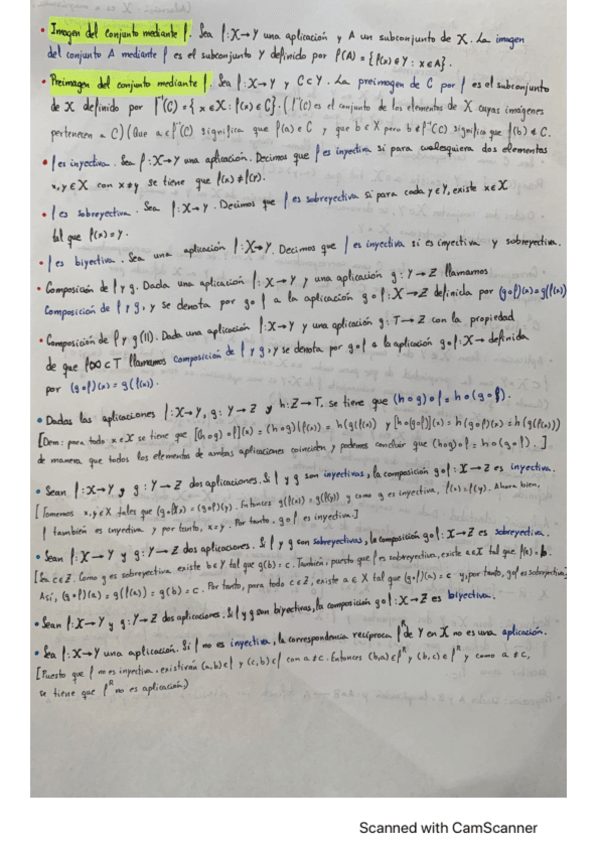 • Imagen del conjunto mediante f. Sea f: X→Y una aplicación y A un subconjunto de X. La imagen
del conjunto A mediante f es el subconjunto Y definido por f(A) = {f(x) ∈ Y : x ∈ A}.
• Preimagen del conjunto mediante f. Sea f: X→Y y C ⊂ Y. La preimagen de C por f es el subconjunto
de X definido por f⁻¹(C) = {x ∈ X : f(x) ∈ C}. (f⁻¹(C) es el conjunto de los elementos de X cuyas imágenes
pertenecen a C) (Que a ∈ f⁻¹(C) significa que f(a) ∈ C y que b ∈ X pero b ∉ f⁻¹(C) significa que f(b) ∉ C.
• f es inyectiva. Sea f: X→Y una aplicación. Decimos que f es inyectiva si para cualesquiera dos elementos
x, y ∈ X con x ≠ y se tiene que f(x) ≠ f(y).
• f es sobreyectiva. Sea f: X→Y. Decimos que f es sobreyectiva si para cada y ∈ Y, existe x ∈ X
tal que f(x) = y.
• f es biyectiva. Sea una aplicación f: X→Y. Decimos que f es inyectiva si es inyectiva y sobreyectiva.
• Composición de f y g. Dada una aplicación f: X→Y y una aplicación g: Y→Z llamamos
Composición de f y g, y se denota por g∘f a la aplicación g∘f: X→Z definida por (g∘f)(x) = g(f(x))
• Composición de f y g (II). Dada una aplicación f: X→Y y una aplicación g: T→Z con la propiedad
de que f(X) ⊂ T llamamos composición de f y g, y se denota por g∘f a la aplicación g∘f: X→ definida
por (g∘f)(x) = g(f(x)).
• Dadas las aplicaciones f: X→Y, g: Y→Z y h: Z→T, se tiene que (h∘g)∘f = h∘(g∘f).
[Dem: para todo x ∈ X se tiene que [(h∘g)∘f](x) = (h∘g)(f(x)) = h(g(f(x)) y [h∘(g∘f)](x) = h(g∘f)(x) = h(g(f(x))
de manera que todos los elementos de ambas aplicaciones coinciden y podemos concluir que (h∘g)∘f = h∘(g∘f). ]
• Sean f: X→Y y g: Y→Z dos aplicaciones. Si f y g son inyectivas, la composición g∘f: X→Z es inyectiva.
[Tomemos x, y ∈ X tales que (g∘f)(x) = (g∘f)(y). Entonces g(f(x)) = g(f(y)) y como g es inyectiva, f(x) = f(y). Ahora bien,
f también es inyectiva y por tanto, x = y. Por tanto, g∘f es inyectiva.]
• Sean f: X→Y y g: Y→Z dos aplicaciones. Si f y g son sobreyectivas, la composición g∘f: X→Z es sobreyectiva.
[Sea c ∈ Z. Como g es sobreyectiva existe b ∈ Y tal que g(b) = c. También, puesto que f es sobreyectiva, existe a ∈ X tal que f(a) = b.
Así, (g∘f)(a) = g(f(a)) = g(b) = c. Por tanto, para todo c ∈ Z, existe a ∈ X tal que (g∘f)(a) = c y, por tanto, g∘f es sobreyectiva]
• Sean f: X→Y y g: Y→Z dos aplicaciones. Si f y g son biyectivas, la composición g∘f: X→Z es biyectiva.
• Sea f: X→Y una aplicación. Si f no es inyectiva, la correspondencia recíproca fᴿ de Y en X no es una aplicación.
[Puesto que f no es inyectiva, existirán (a,b) ∈ f y (c,b) ∈ f con a ≠ c. Entonces (b,a) ∈ fᴿ y (b,c) ∈ fᴿ y como a ≠ c,
se tiene que fᴿ no es aplicación)
Scanned with CamScanner